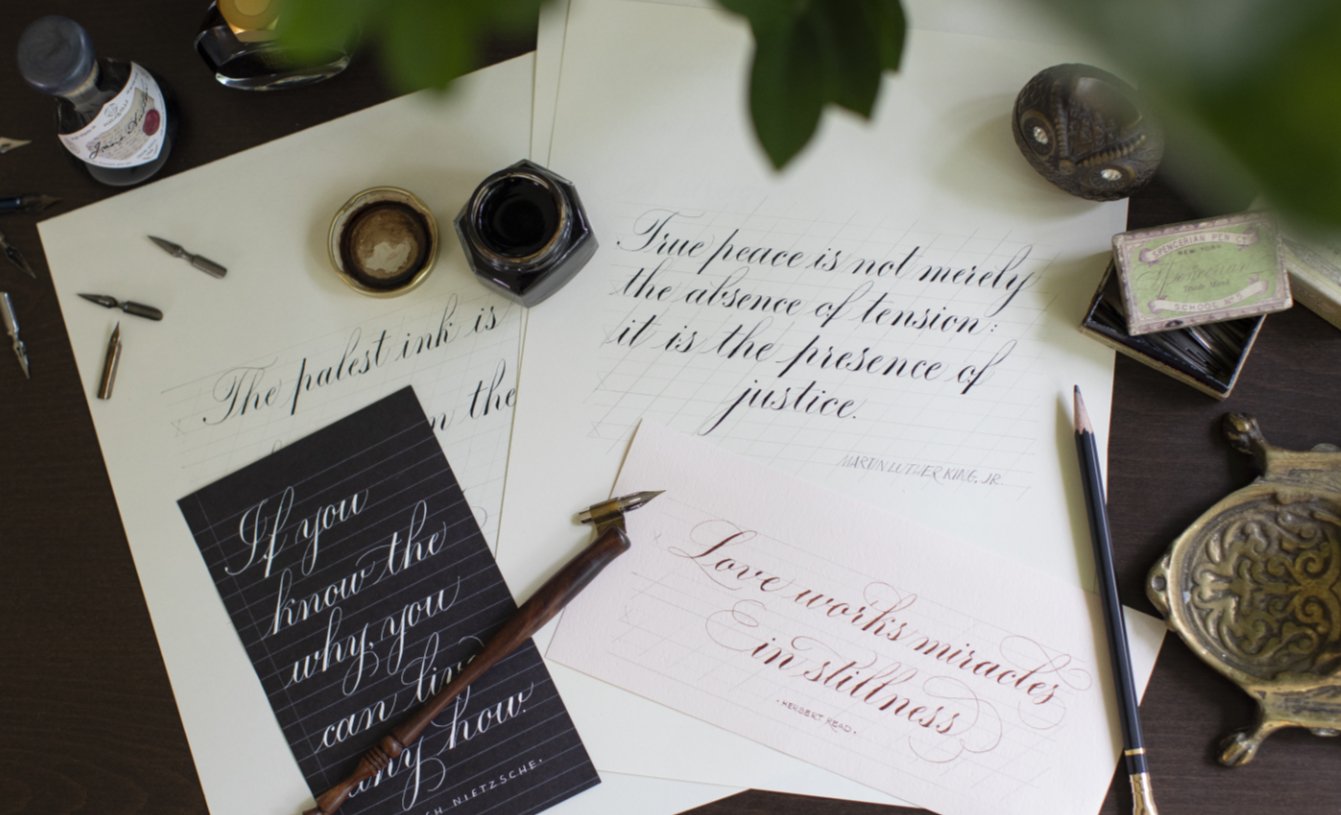 The palest ink is
the
If you
know the
why, you
can live
any how.
NIETZSCHE.
True peace is not merely
the absence of tension:
it is the presence of
justice.
MARTIN LUTHER KING, JR.
Love works miracles
in stillness
HERBERT READ.
SPENCERIAN PEN CO.
NEW YORK
Spencerian
Trade Mark
SCHOOL No